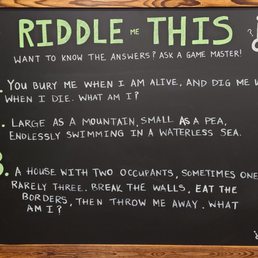 RIDDLE ME THIS
WANT TO KNOW THE ANSWERS? ASK A GAME MASTER!
. YOU BURY ME WHEN I AM ALIVE, AND DIG ME
WHEN I DIE. WHAT AM I?
. LARGE AS A MOUNTAIN, SMALL AS A PEA,
ENDLESSLY SWIMMING IN A WATERLESS SEA.
3. A HOUSE WITH TWO OCCUPANTS, SOMETIMES ONE
RARELY THREE. BREAK THE WALLS, EAT THE
BORDERS, THEN THROW ME AWAY. WHAT
AM I?